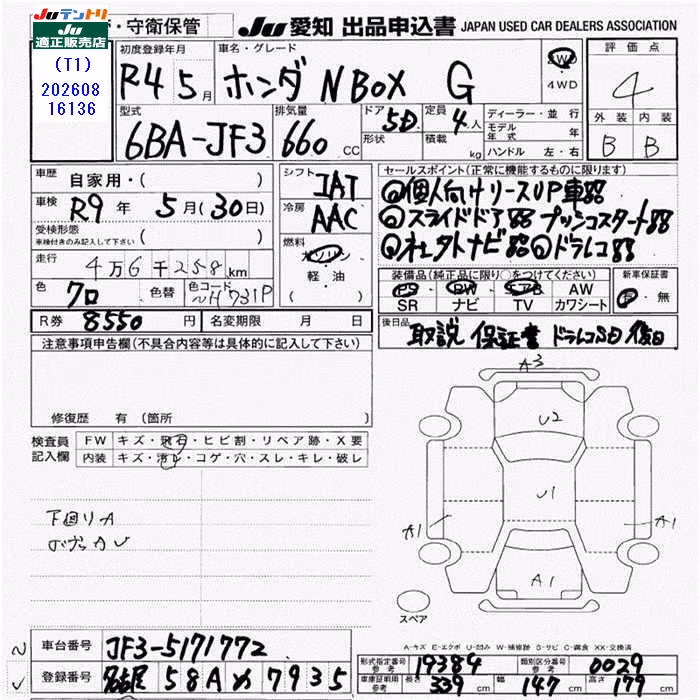 Juテントリ ・守衛保管 Ju 愛知 出品申込書 JAPAN USED CAR DEALERS ASSOCIATION
Ju 適正販売店
(T1)
202608
16136
初度登録年月 車名・グレード 評価点
R4 5月 ホンダ N BOX G 2WD 4WD 4
型式 排気量 ドア 定員 ディーラー・並行 外装 内装
6BA-JF3 660cc 5D 4人 モデル年式 年 B B
形状 積載 kg ハンドル 左・右
車歴 自家用・( ) シフト IAT セールスポイント(正常に機能するものに限ります)
車検 R9年 5月(30日) 冷房 AAC ◎個人向けリースUP車
受検形態 車検付きのみ記入して下さい ( ) ◎スライドドア プッシュスタート
走行 4万6千258km 燃料 ガソリン 軽・油 ( ) ◎社外ナビ ◎ドラレコ
色 クロ 色替 色コード NH731P 装備品(純正品に限り○をつけてください) 新車保証書
PS・PW・エアB AW 有・無
SR ナビ TV カワシート
R券 8550円 名変期限 月 日 後日品 取説 保証書 ドラレコSD 後日
注意事項申告欄(不具合内容等は具体的に記入して下さい)
修復歴 有(箇所
検査員 記入欄
FW キズ・飛石・ヒビ割・リペア跡・X要
内装 キズ・汚レ・コゲ・穴・スレ・キレ・破レ
A3
U2
U1
A1 A1
A1
下回りA
スペア
A-キズ E-エクボ U-凹み W-補修跡 S-サビ C-腐食 XX-交換済
車台番号 JF3-5171772
登録番号 名古屋 58A 7935
形式指定番号 参考 19384 類別区分番号 参考 0029
車庫証明用 参考 長さ 339cm 幅 147cm 高さ 179cm